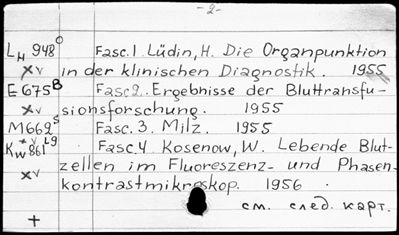 -2-
L H 948 O Fasc.1 Lüdin, H. Die Organpunktion
xv in der klinischen Diagnostik. 1955
E 675 B Fasc2. Ergebnisse der Bluttransfu-
xv sionsforschung. 1955
M669 s Fasc. 3. Milz. 1955
K W 861 L9 Fasc.4 Kosenow, W. Lebende Blut-
xv zellen im Fluoreszenz- und Phasen-
xv kontrastmikroskop. 1956
см. след. карт.
+